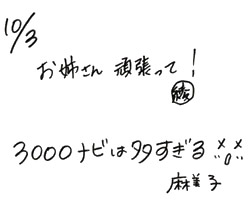 10/3
お姉さん 頑張って!
綾
3000ナビは多すぎる
麻美子